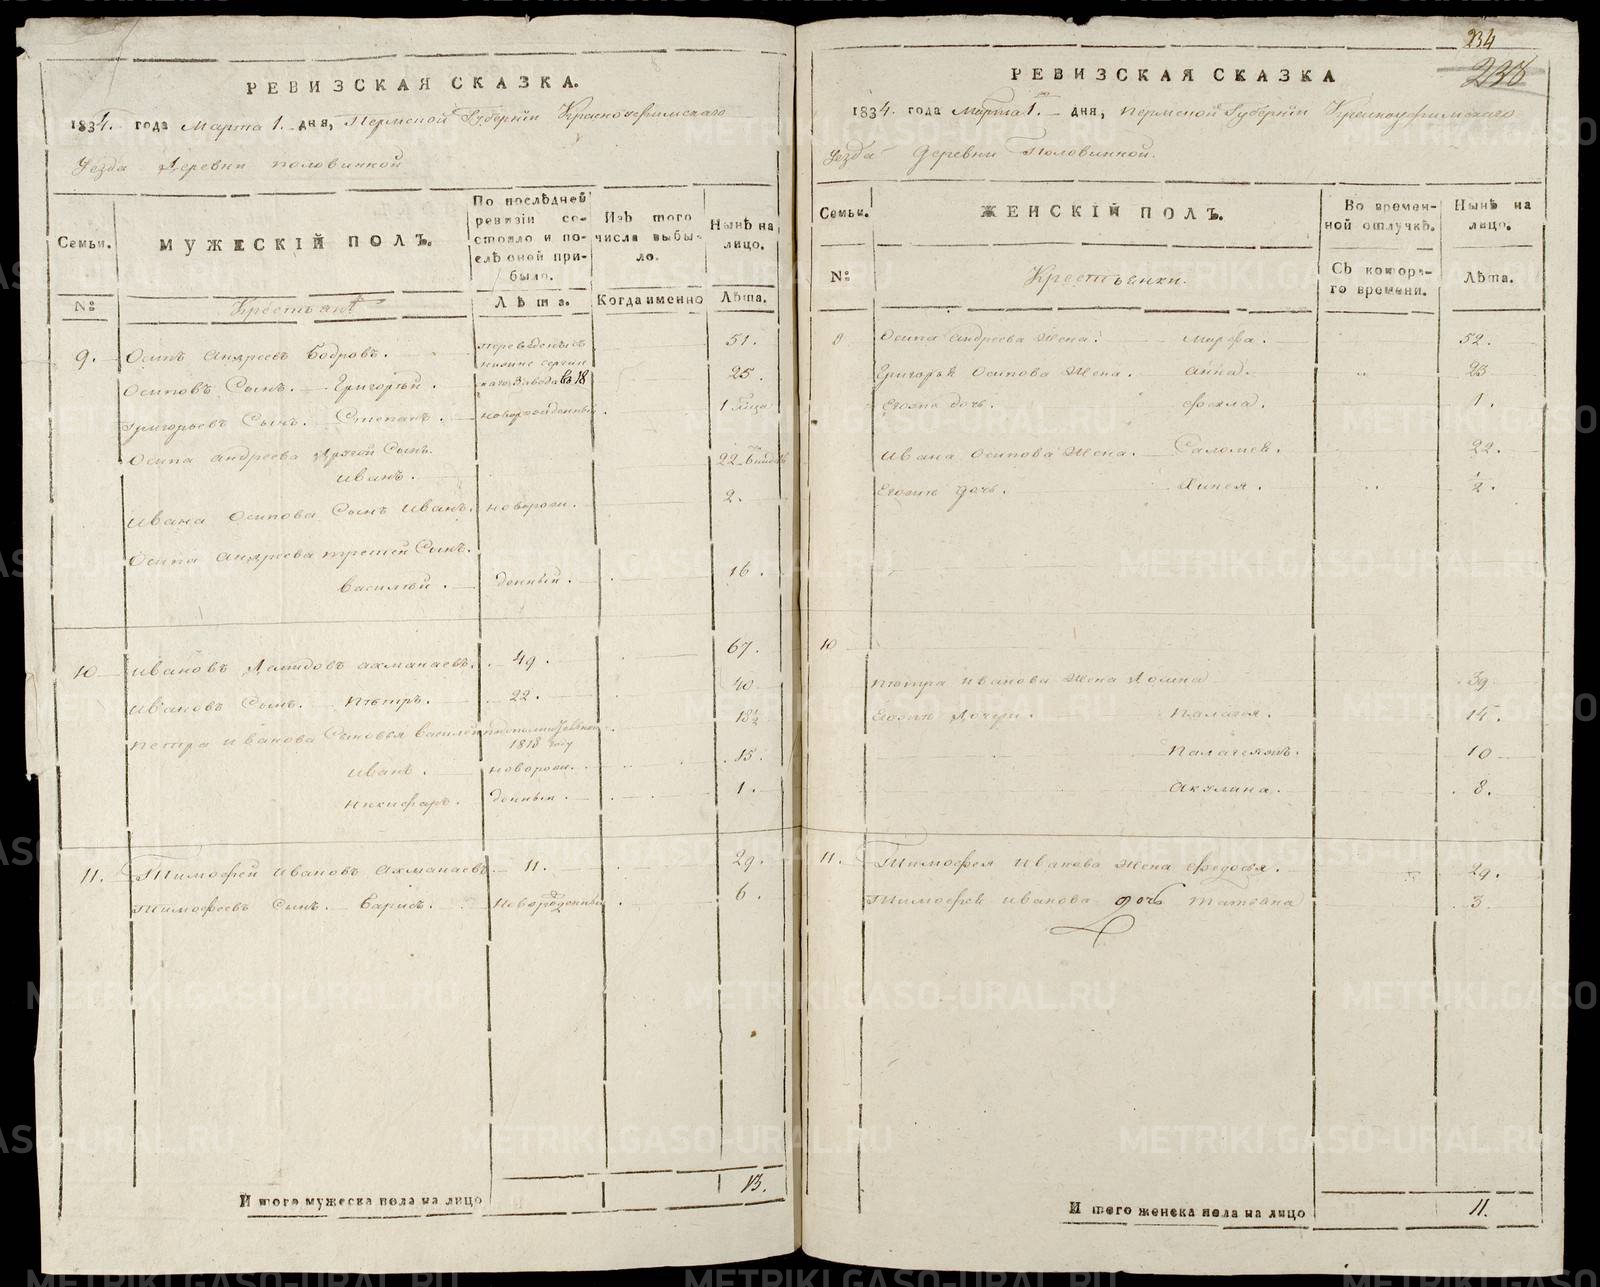 РЕВИЗСКАЯ СКАЗКА.
1834. года Марта 1. дня, Пермской Губернiи Красноуфимскаго
Уезда Деревни Половинной
Семьи.
МУЖЕСКIЙ ПОЛЪ.
По послѣдней ревизiи состояло и послѣ оной прибыло.
Изъ того числа выбыло.
Нынѣ на лицо.
№:
Крестьянѣ
Лѣта.
Когда именно
Лѣта.
9. Осипъ Андреевъ Бодровъ. 51.
Осиповъ Сынъ. Григорѣй. завода въ 18 25.
Григорьевъ Сынъ. Степанъ. новорожденный. 1
Осипа Андреева другой Сынъ.
Иванъ. 22
Ивана Осипова Сынъ Иванъ. новорож. 2.
Осипа Андреева третей Сынъ.
Василѣй. денный. 16.
10 Ивановъ Демидовъ Ахманаевъ. 49. 67.
Ивановъ Сынъ. Пѣтръ. 22. 40
Петра Иванова Сыновья Василей 1818 году 18½
Иванъ. новорож. 15.
Никифаръ. денныи. 1.
11. Тимофей Ивановъ Ахманаевъ. 11. 29.
Тимофеевъ Сынъ. Барисъ. Новорожденный. 6.
Итого мужеска пола на лицо 13.
234
238
РЕВИЗСКАЯ СКАЗКА
1834. года Марта 1. дня, Пермской Губернiи Красноуфимскаго
Уезда Деревни Половинной.
Семьи.
ЖЕНСКIЙ ПОЛЪ.
Во временной отлучкѣ.
Нынѣ на лицо.
№:
Крестьянки.
Съ котораго времени.
Лѣта.
9 Осипа Андреева Жена. Марфа. 52.
Григорья Осипова Жена. Анна. 23
Егоже дочь. Фекла. 1.
Ивана Осипова Жена. Саломея. 22.
Егоже дочь. ½.
10
Пѣтра Иванова Жена Домна 39
Егоже Дочери. Палагея. 14.
10
Акулина. 8.
11. Тимофея Иванова Жена Федосья. 29.
Тимофея Иванова дочь Татьяна 3.
Итого женска пола на лицо 11.
METRIKI.GASO-URAL.RU